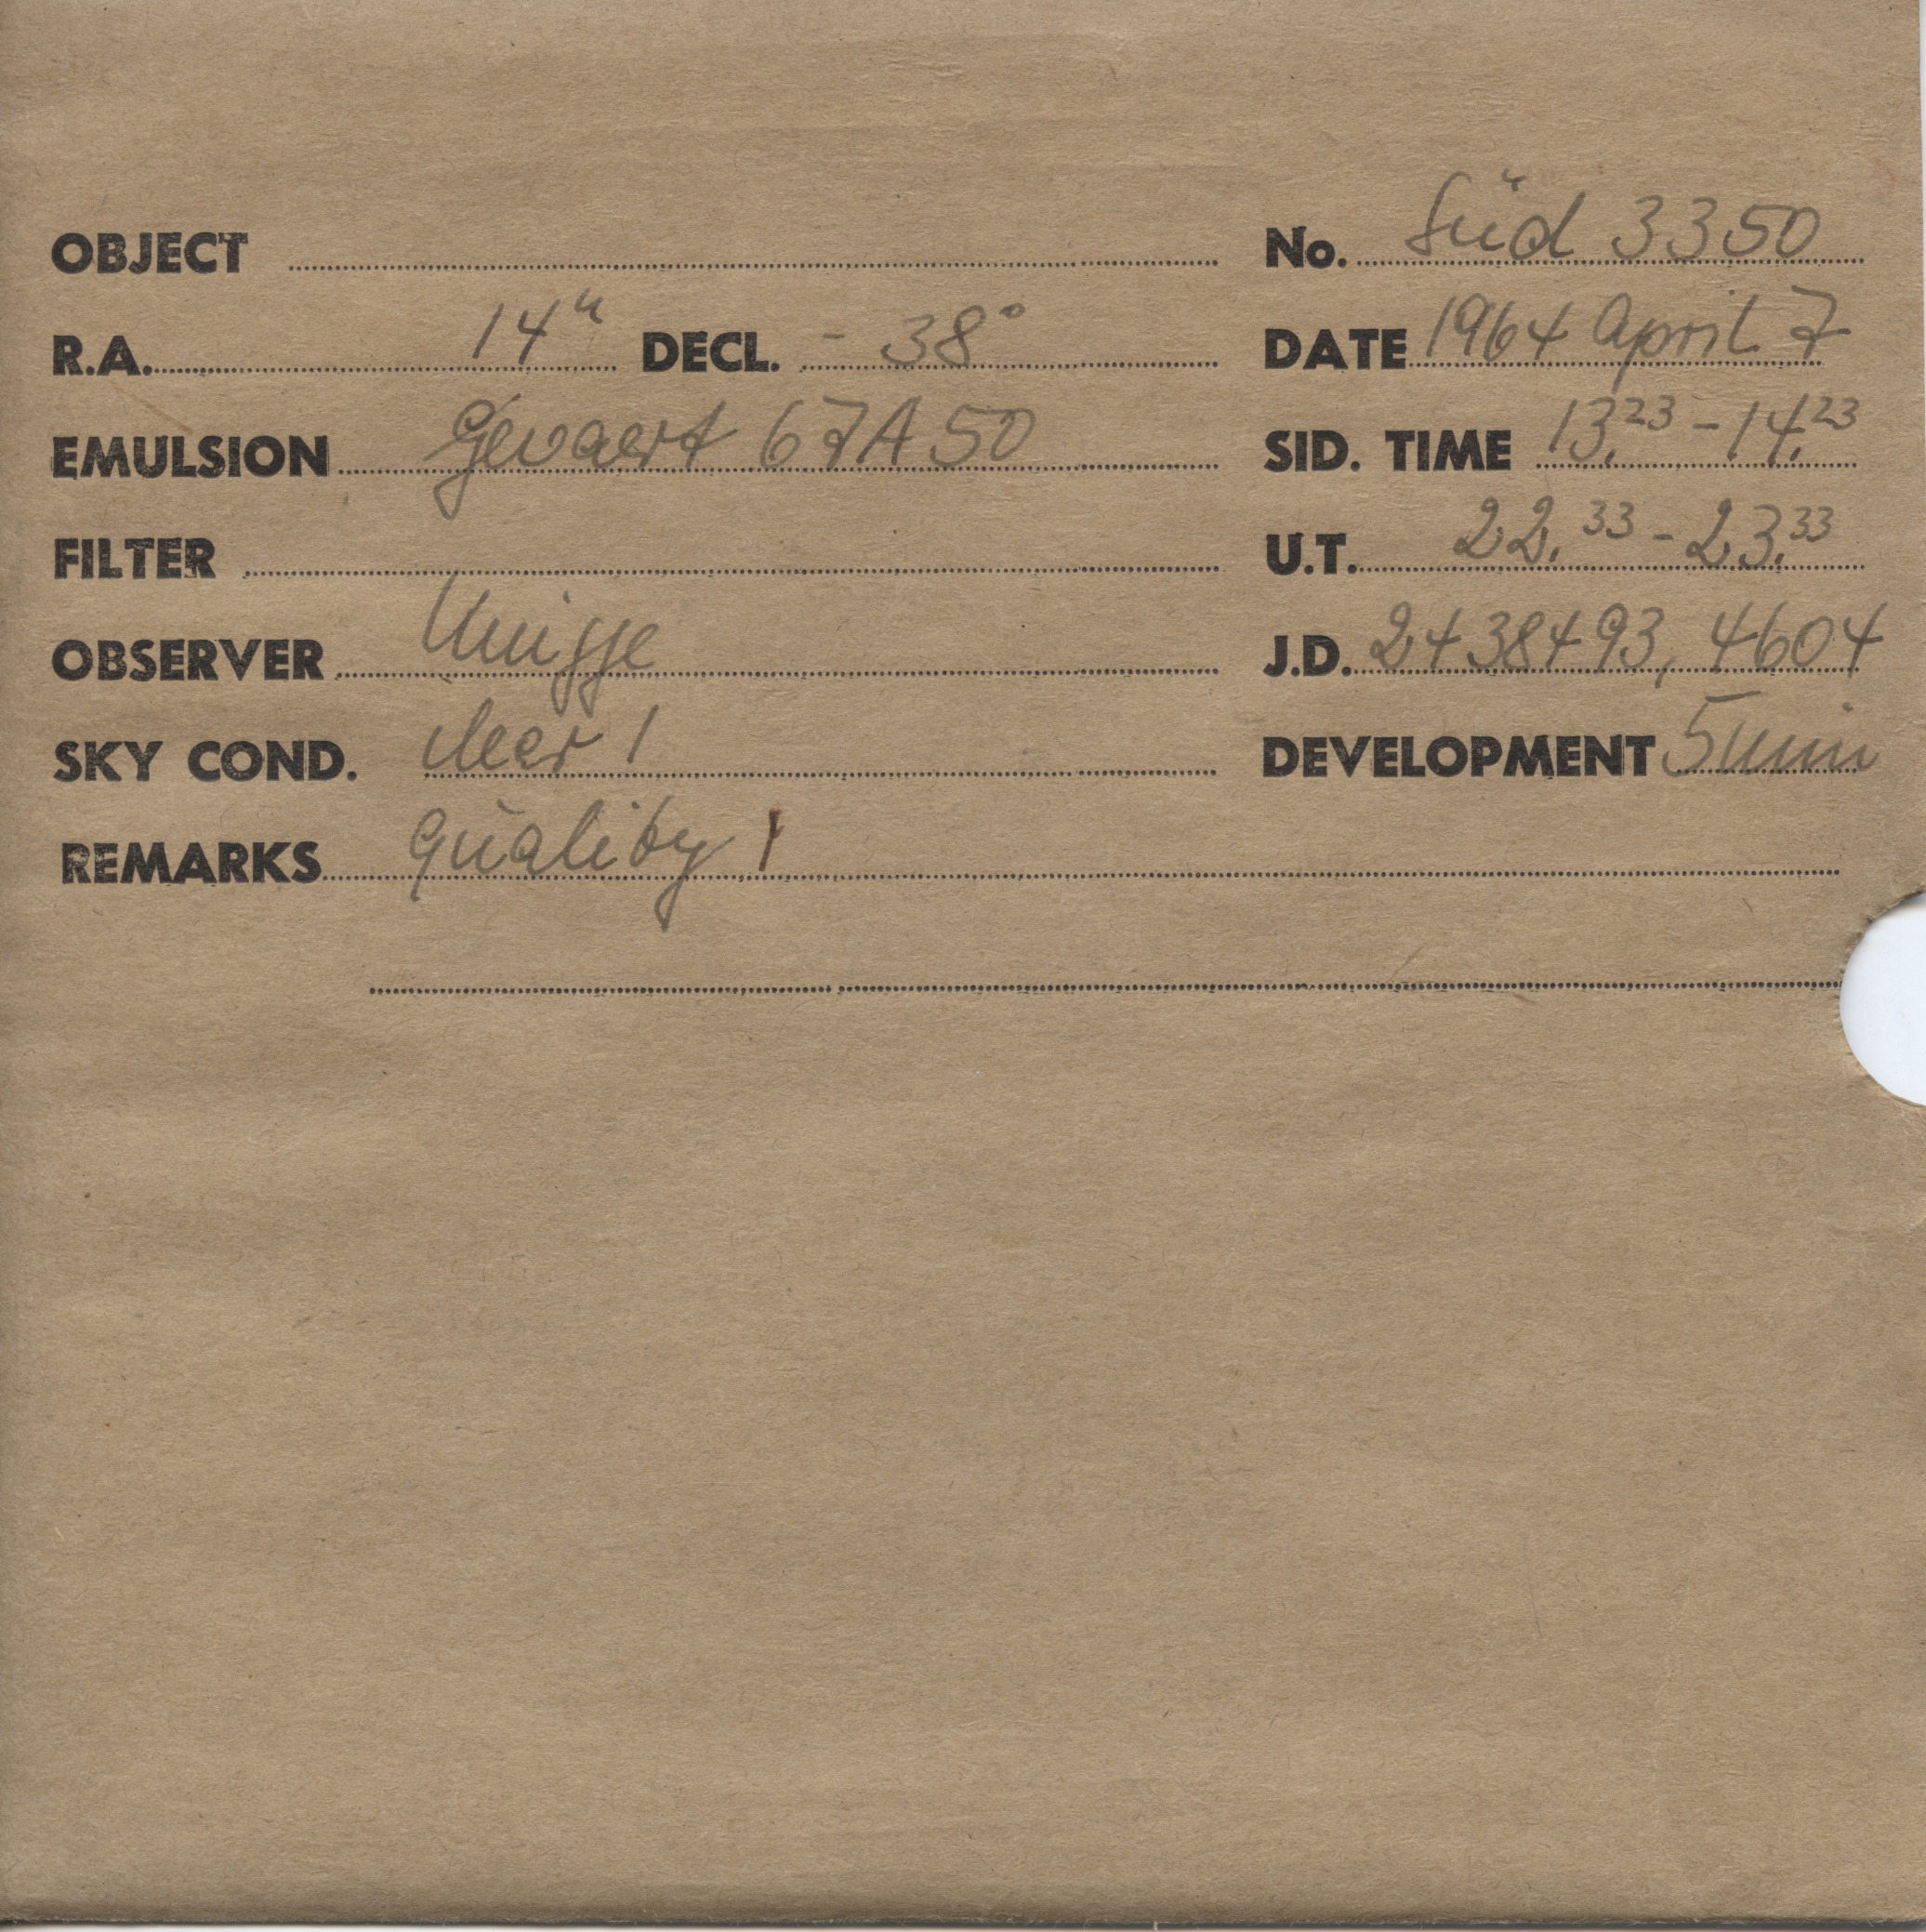 OBJECT No. Süd 3350
R.A. 14h DECL. - 38° DATE 1964 April 7
EMULSION Gevaert 67A50 SID. TIME 13.23 - 14.23
FILTER U.T. 22.33 - 23.33
OBSERVER J.D. 2438493,4604
SKY COND. clear 1 DEVELOPMENT 5 min
REMARKS quality 1